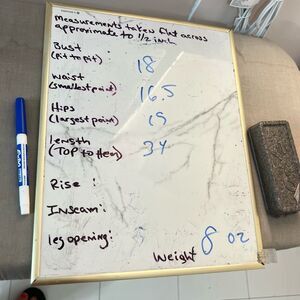 measurements taken flat across
approximate to 1/2 inch
Bust
(Pit to pit) 18
Waist
(smallest point) 16.5
Hips
(largest point) 19
length
(TOP to Hem) 34
Rise :
Inseam :
leg opening :
Weight 8 oz
EXPO